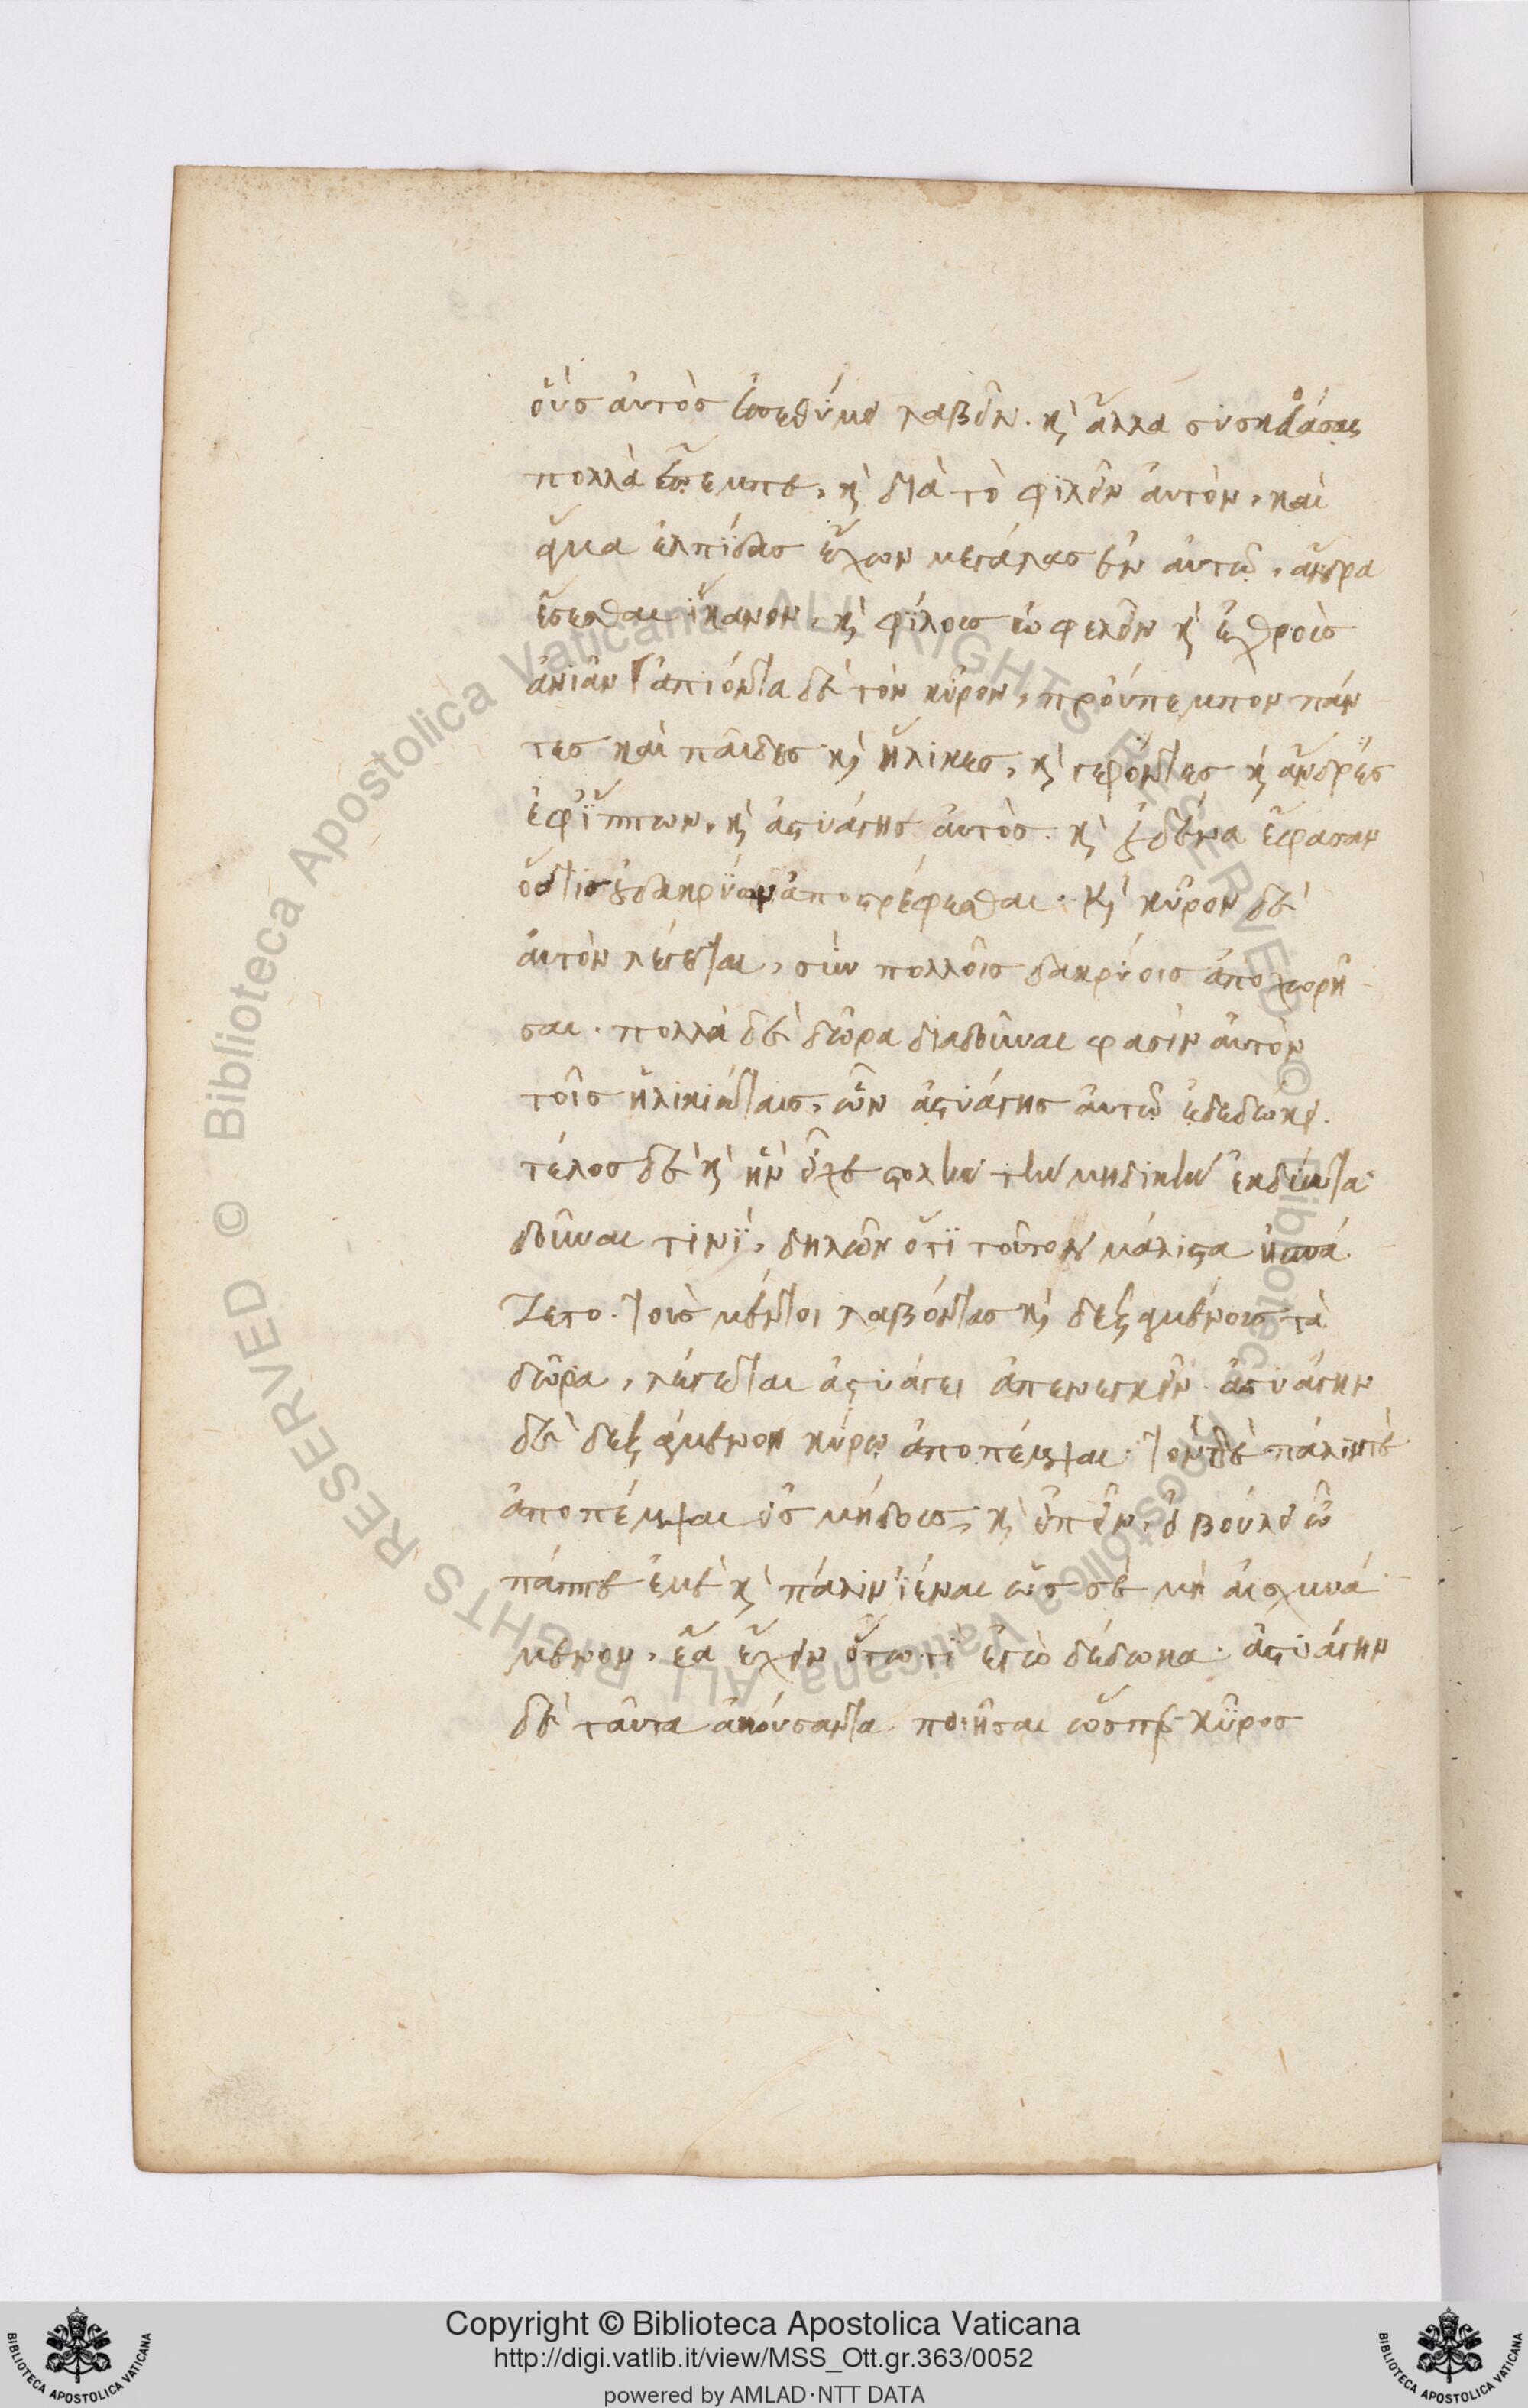 οὓς αὐτὸς ἐπεθύμει λαβεῖν. κὶ ἄλλα συσκευάσας
πολλὰ ἔπεμπε, κὶ διὰ τὸ φιλεῖν αὐτὸν, καὶ
ἅμα ἐλπίδας ἔχων μεγάλας ἐν αὐτῶ, ἄνδρα
ἔσεσθαι ἱκανὸν, κὶ φίλους ὠφελεῖν κὶ ἐχθροὺς
ἀνιᾶν ἀπιόντα δὲ τὸν κῦρον, προύπεμπον πάν
τες καὶ παῖδες κὶ ἥλικες, κὶ γέροντες κὶ ἄνδρες
ἐφ' ἵππων, κὶ ἀστυάγης αὐτὸς. κὶ οὐδένα ἔφασαν
ὅστις οὐ δακρύων ἀποστρέφεσθαι. κὶ κῦρον δὲ
αὐτὸν λέγεται, σὺν πολλοῖς δακρύοις ἀποχωρῆ
σαι. πολλὰ δὲ δῶρα διαδοῦναι φασὶν αὐτὸν
τοῖς ἡλικιώταις, ὧν ἀστυάγης αὐτῶ ἐδεδώκει.
τέλος δὲ κὶ ἣν εἶχε στολὴν τὴν μηδικὴν ἐκδύντα
δοῦναι τινὶ, δηλῶν ὅτι τοῦτον μάλιστα ἠσπά
ζετο. τοὺς μέντοι λαβόντας κὶ δεξαμένους τὰ
δῶρα, λέγεται ἀστυάγει ἀπενεγκεῖν. ἀστυάγην
δὲ δεξάμενον κύρω ἀποπέμψαι. τὸν δὲ πάλιν τε
ἀποπέμψαι εἰς μήδους, κὶ εἰπεῖν, εἰ βούλει ὦ
πάππε ἐμὲ κὶ πάλιν ἰέναι ὡς σὲ μὴ αἰσχυνό
μενον, ἔα ἔχειν ὅτω τὶ ἐγὼ δέδωκα. ἀστυάγην
δὲ ταῦτα ἀκούσαντα ποιῆσαι ὥσπερ κῦρος
Copyright © Biblioteca Apostolica Vaticana
http://digi.vatlib.it/view/MSS_Ott.gr.363/0052
powered by AMLAD·NTT DATA